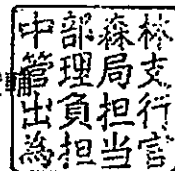 中部森林
管理局支
出負担行
為担当官